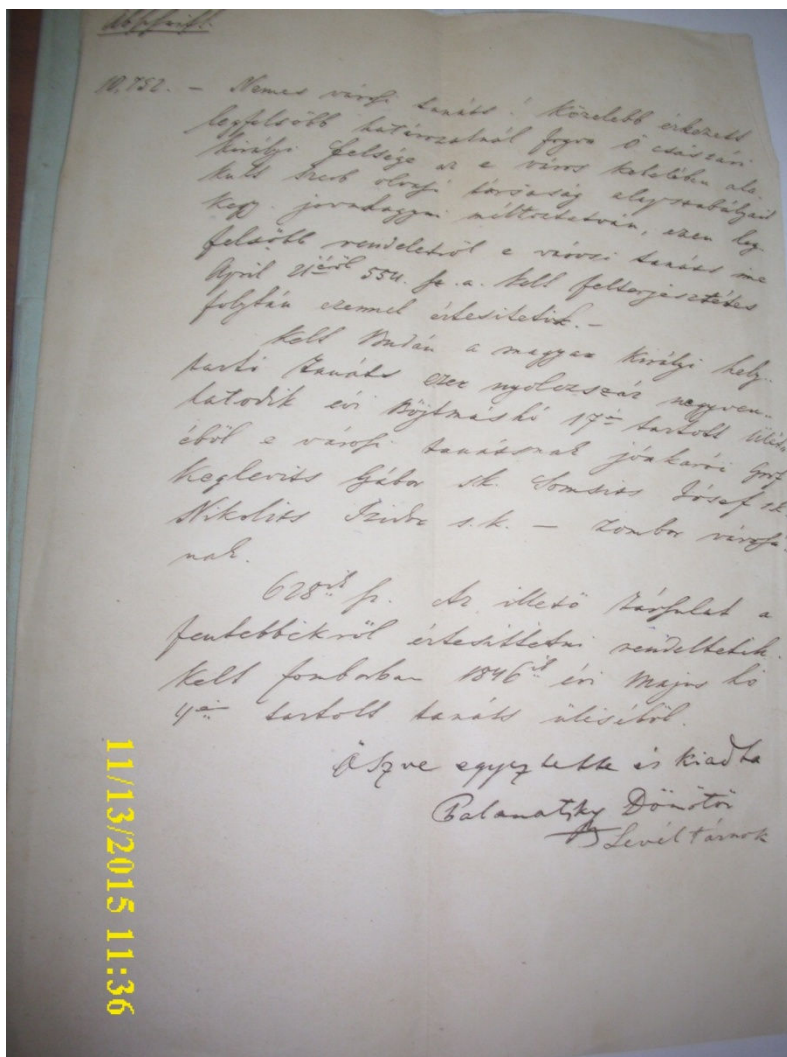 Abschrift.
10,752. – Nemes városi tanáts! Közelebb érkezett
legfelsöbb határozatnál fogva Ö császári
királyi Felsége az e város kebelében ala-
kult szerb olvasó társaság alapszabályait
kegy. jóváhagyni méltóztatván, ezen leg
felsöbb rendeletröl e városi tanáts
April 21éröl 554. sz. a. kelt felterjesztétes
folytán ezennel értesitetik. –
Kelt Budán a magyar királyi hely-
tartó Tanáts ezer nyolczszáz negyven-
hatodik évi Böjtmás hó 17én tartott
éböl e városi tanátsnak jóakarói Gróf
Keglevits Gábor sk. Somsits Jósef sk.
Nikolits Izidor s.k. – Zombor városá-
nak.
628ik sz. Az illetö Társulat a
fentebbikröl értesittetni rendeltetik.
Kelt Zomborban 1846ik évi Majus hó
4én tartott tanáts üléséböl.
Öszve egyeztette és kiadta
Dömötör
Levéltárnok
11/13/2015 11:36